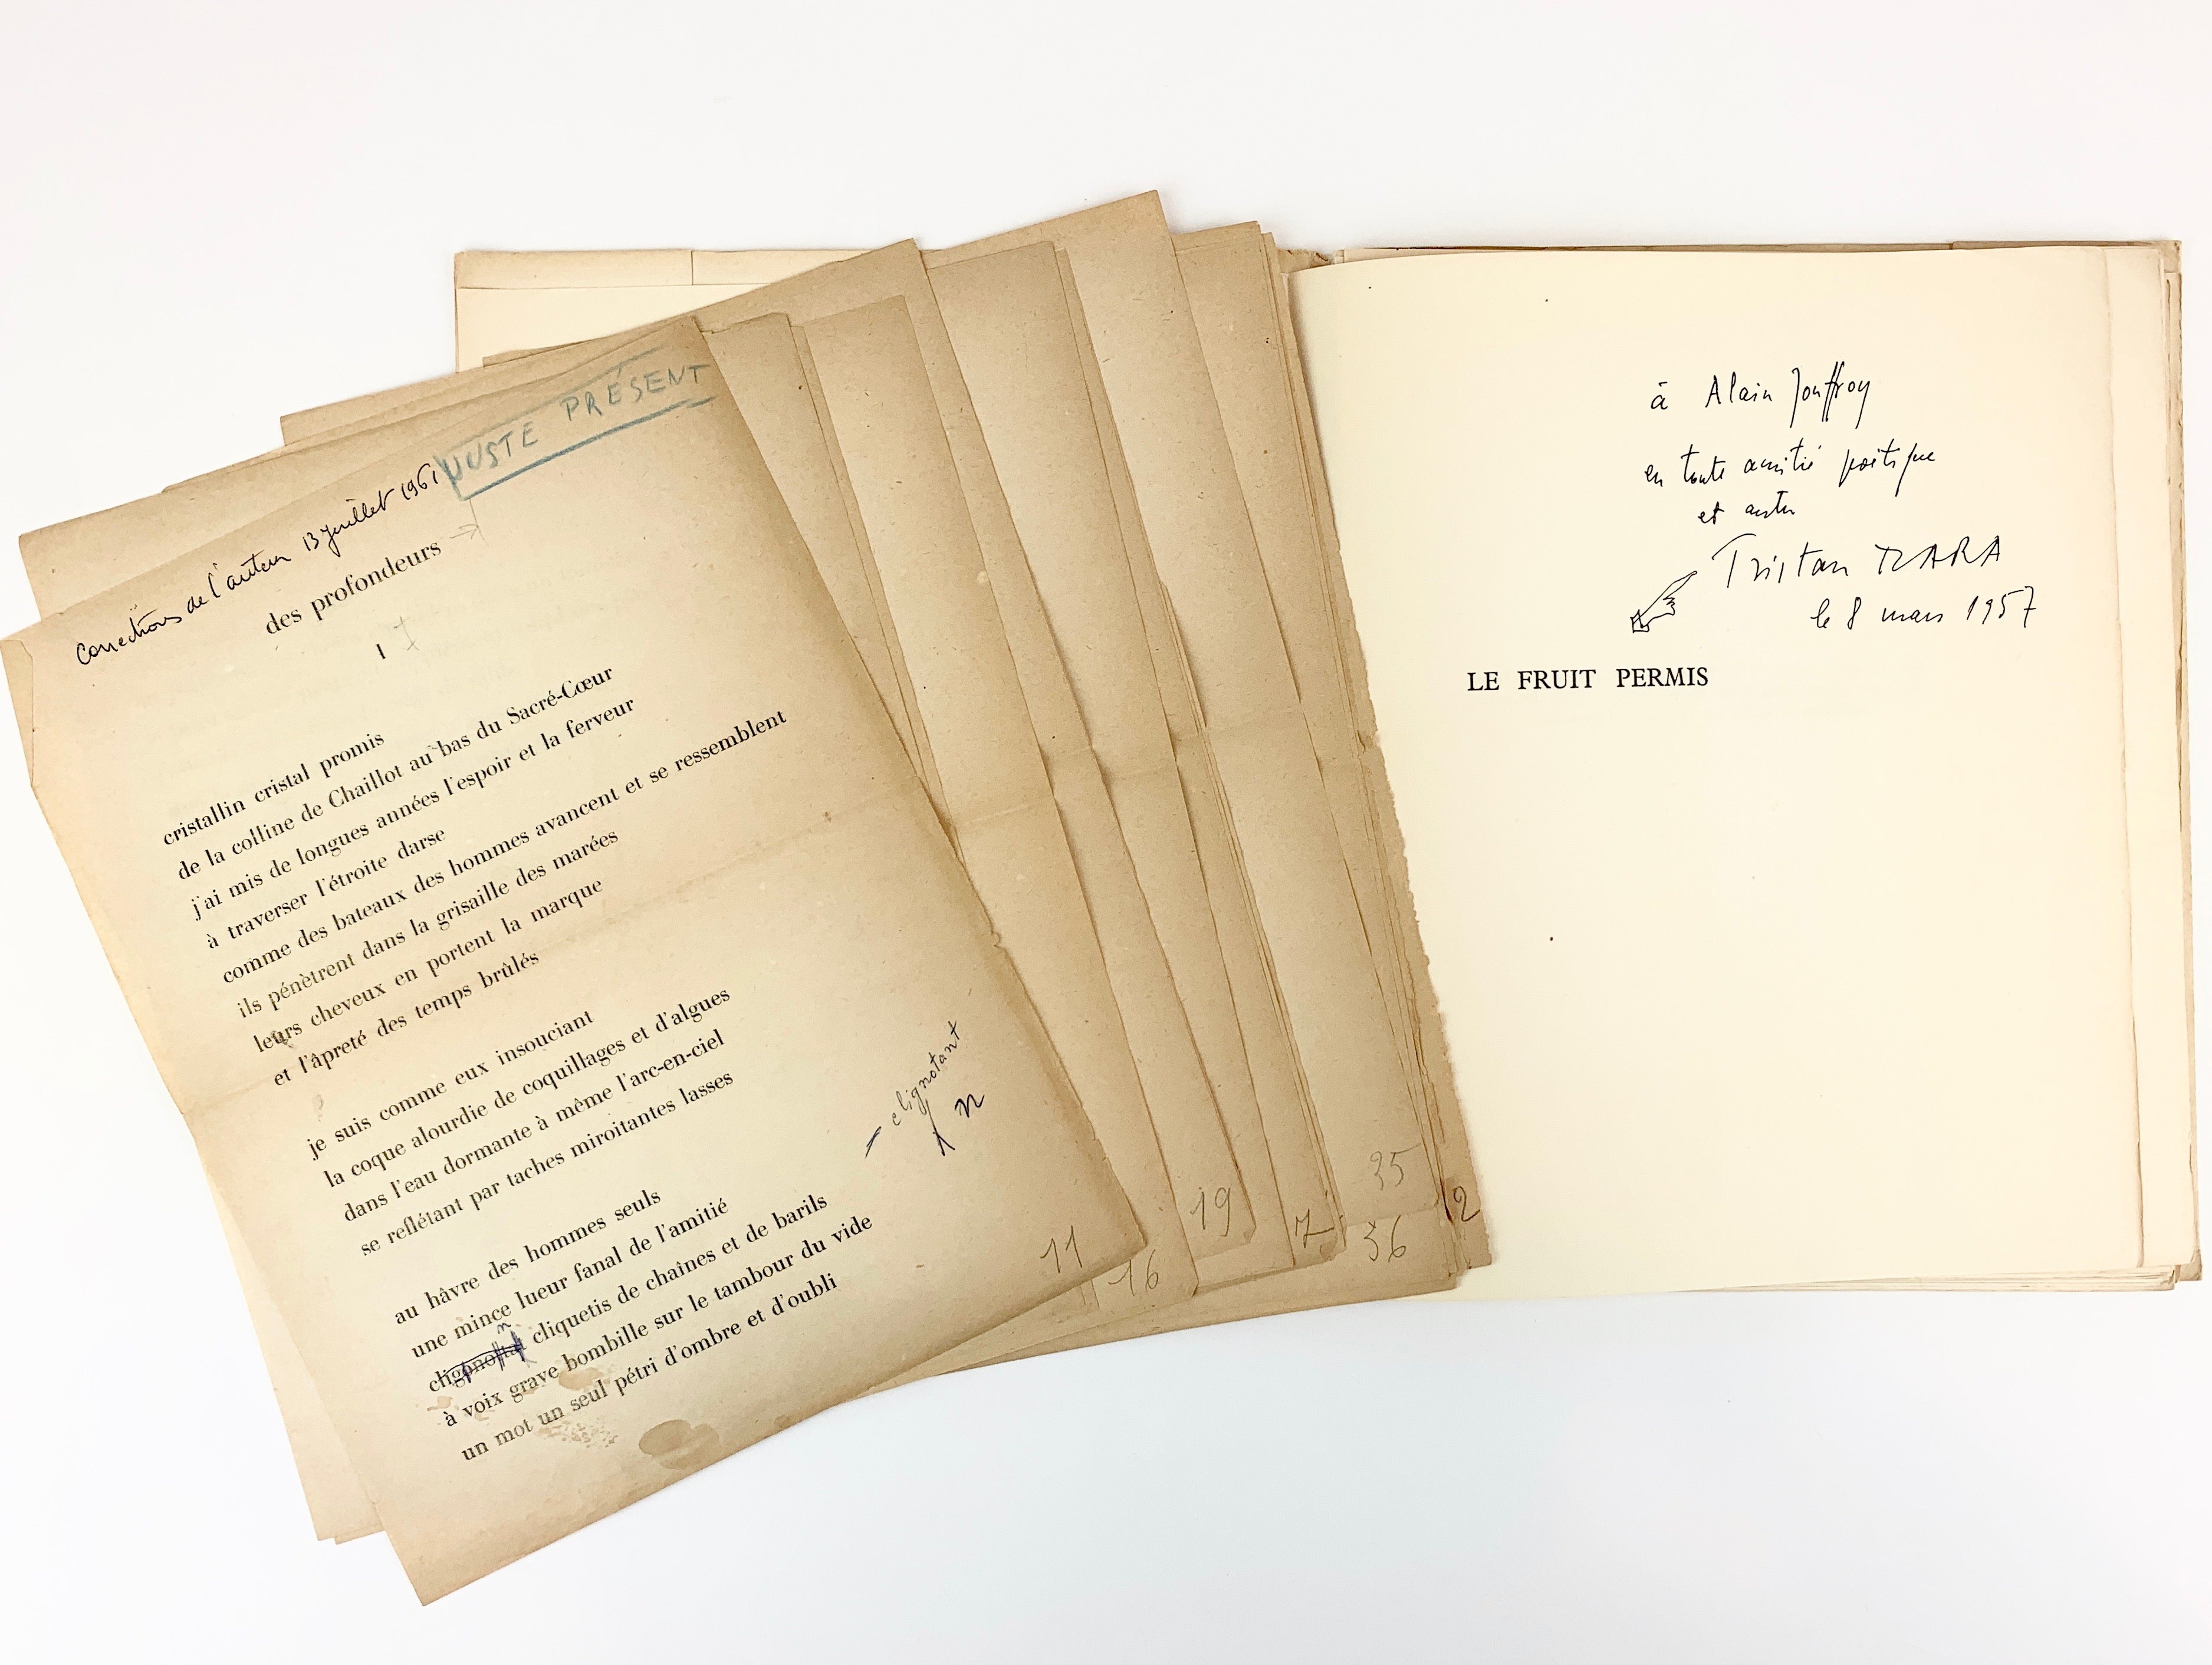 JUSTE PRÉSENT
Corrections de l'auteur 13 Juillet 1961
des profondeurs
I 7
cristallin cristal promis
de la colline de Chaillot au bas du Sacré-Cœur
j'ai mis de longues années l'espoir et la ferveur
à traverser l'étroite darse
comme des bateaux des hommes avancent et se ressemblent
ils pénètrent dans la grisaille des marées
leurs cheveux en portent la marque
et l'âpreté des temps brûlés
je suis comme eux insouciant
la coque alourdie de coquillages et d'algues
dans l'eau dormante à même l'arc-en-ciel
se reflétant par taches miroitantes lasses
clignotant
n
au hâvre des hommes seuls
une mince lueur fanal de l'amitié
n
cliquetis de chaînes et de barils
à voix grave bombille sur le tambour du vide
un mot un seul pétri d'ombre et d'oubli
11
16
19
7
35
36
12
à Alain Jouffroy
en toute amitié poétique
et autre
Tristan TZARA
le 8 mars 1957
LE FRUIT PERMIS